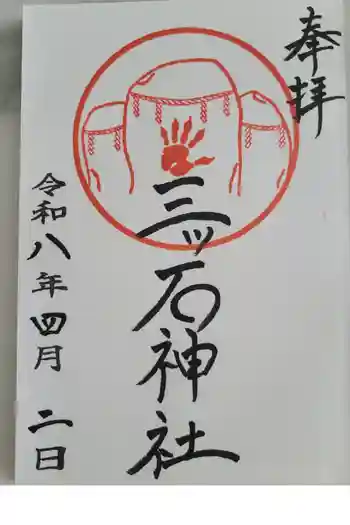 奉拝
三ッ石神社
令和八年四月二日